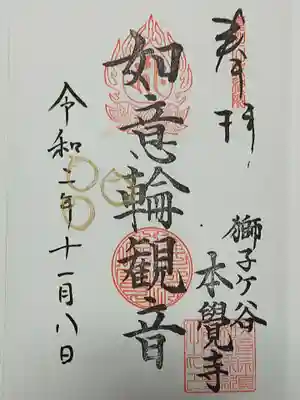 奉拝
獅子ヶ谷
本覺寺
如意輪観音
令和二年十一月八日